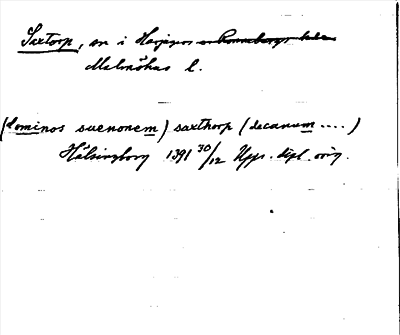 Saxtorp, sn i Harjagers
Malmöhus l.
(dominos suenonem) saxthorp (decanum ....)
Hälsingborg 1391 30/12 Upps. dipl. orig.